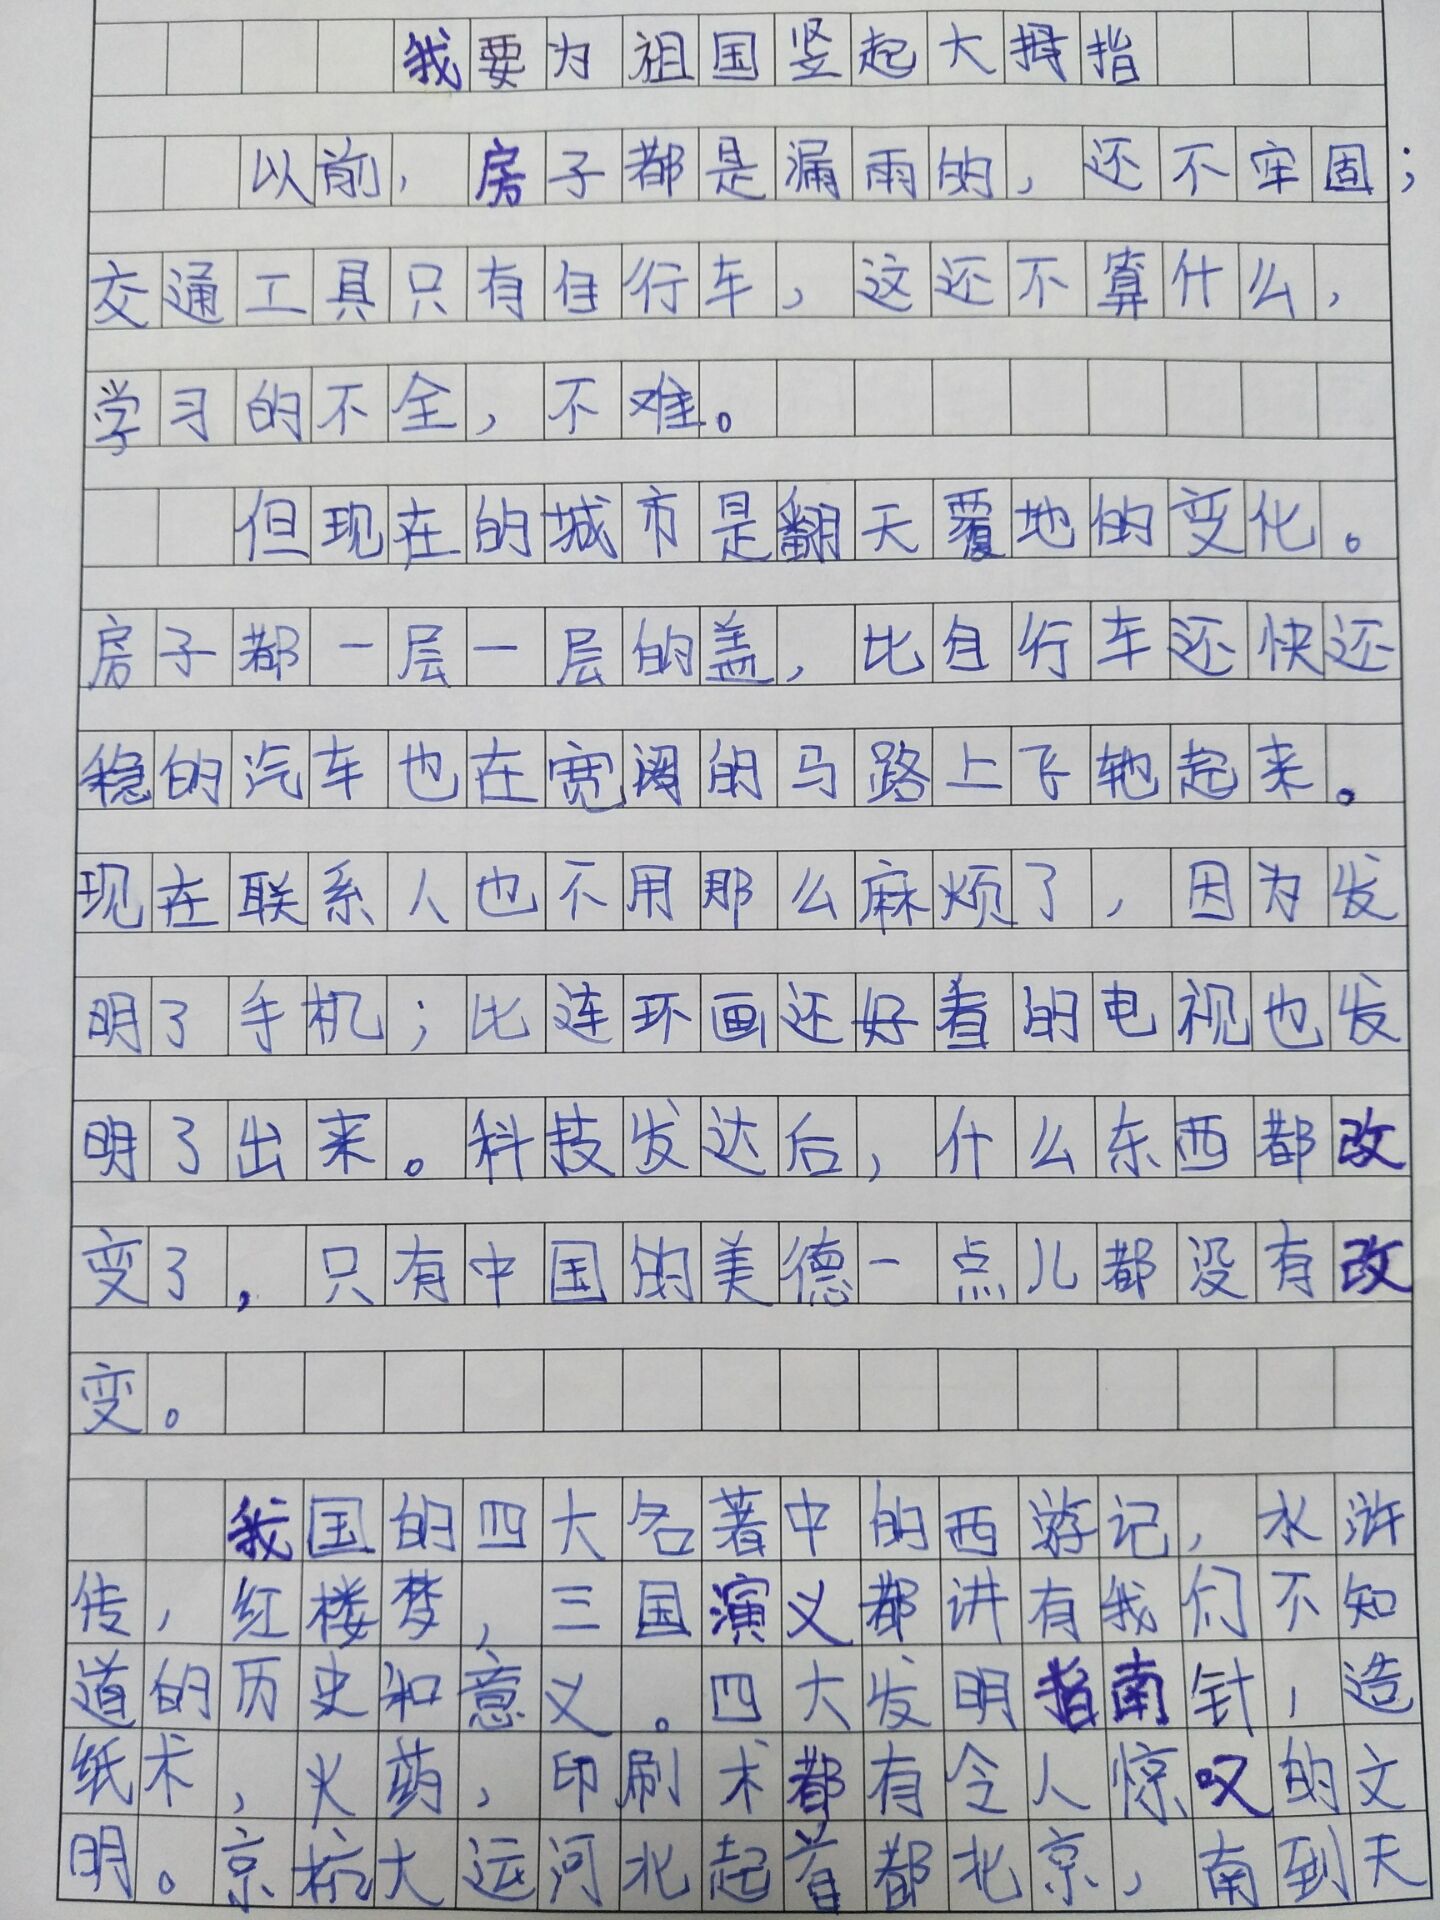 我要为祖国竖起大拇指
以前，房子都是漏雨的，还不牢固；
交通工具只有自行车，这还不算什么，
学习的不全，不难。
但现在的城市是翻天覆地的变化。
房子都一层一层的盖，比自行车还快还
稳的汽车也在宽阔的马路上飞驰起来。
现在联系人也不用那么麻烦了，因为发
明了手机；比连环画还好看的电视也发
明了出来。科技发达后，什么东西都改
变了，只有中国的美德一点儿都没有改
变。
我国的四大名著中的西游记，水浒
传，红楼梦，三国演义都讲有我们不知
道的历史和意义。四大发明指南针，造
纸术，火药，印刷术都有令人惊叹的文
明。京杭大运河北起首都北京，南到天